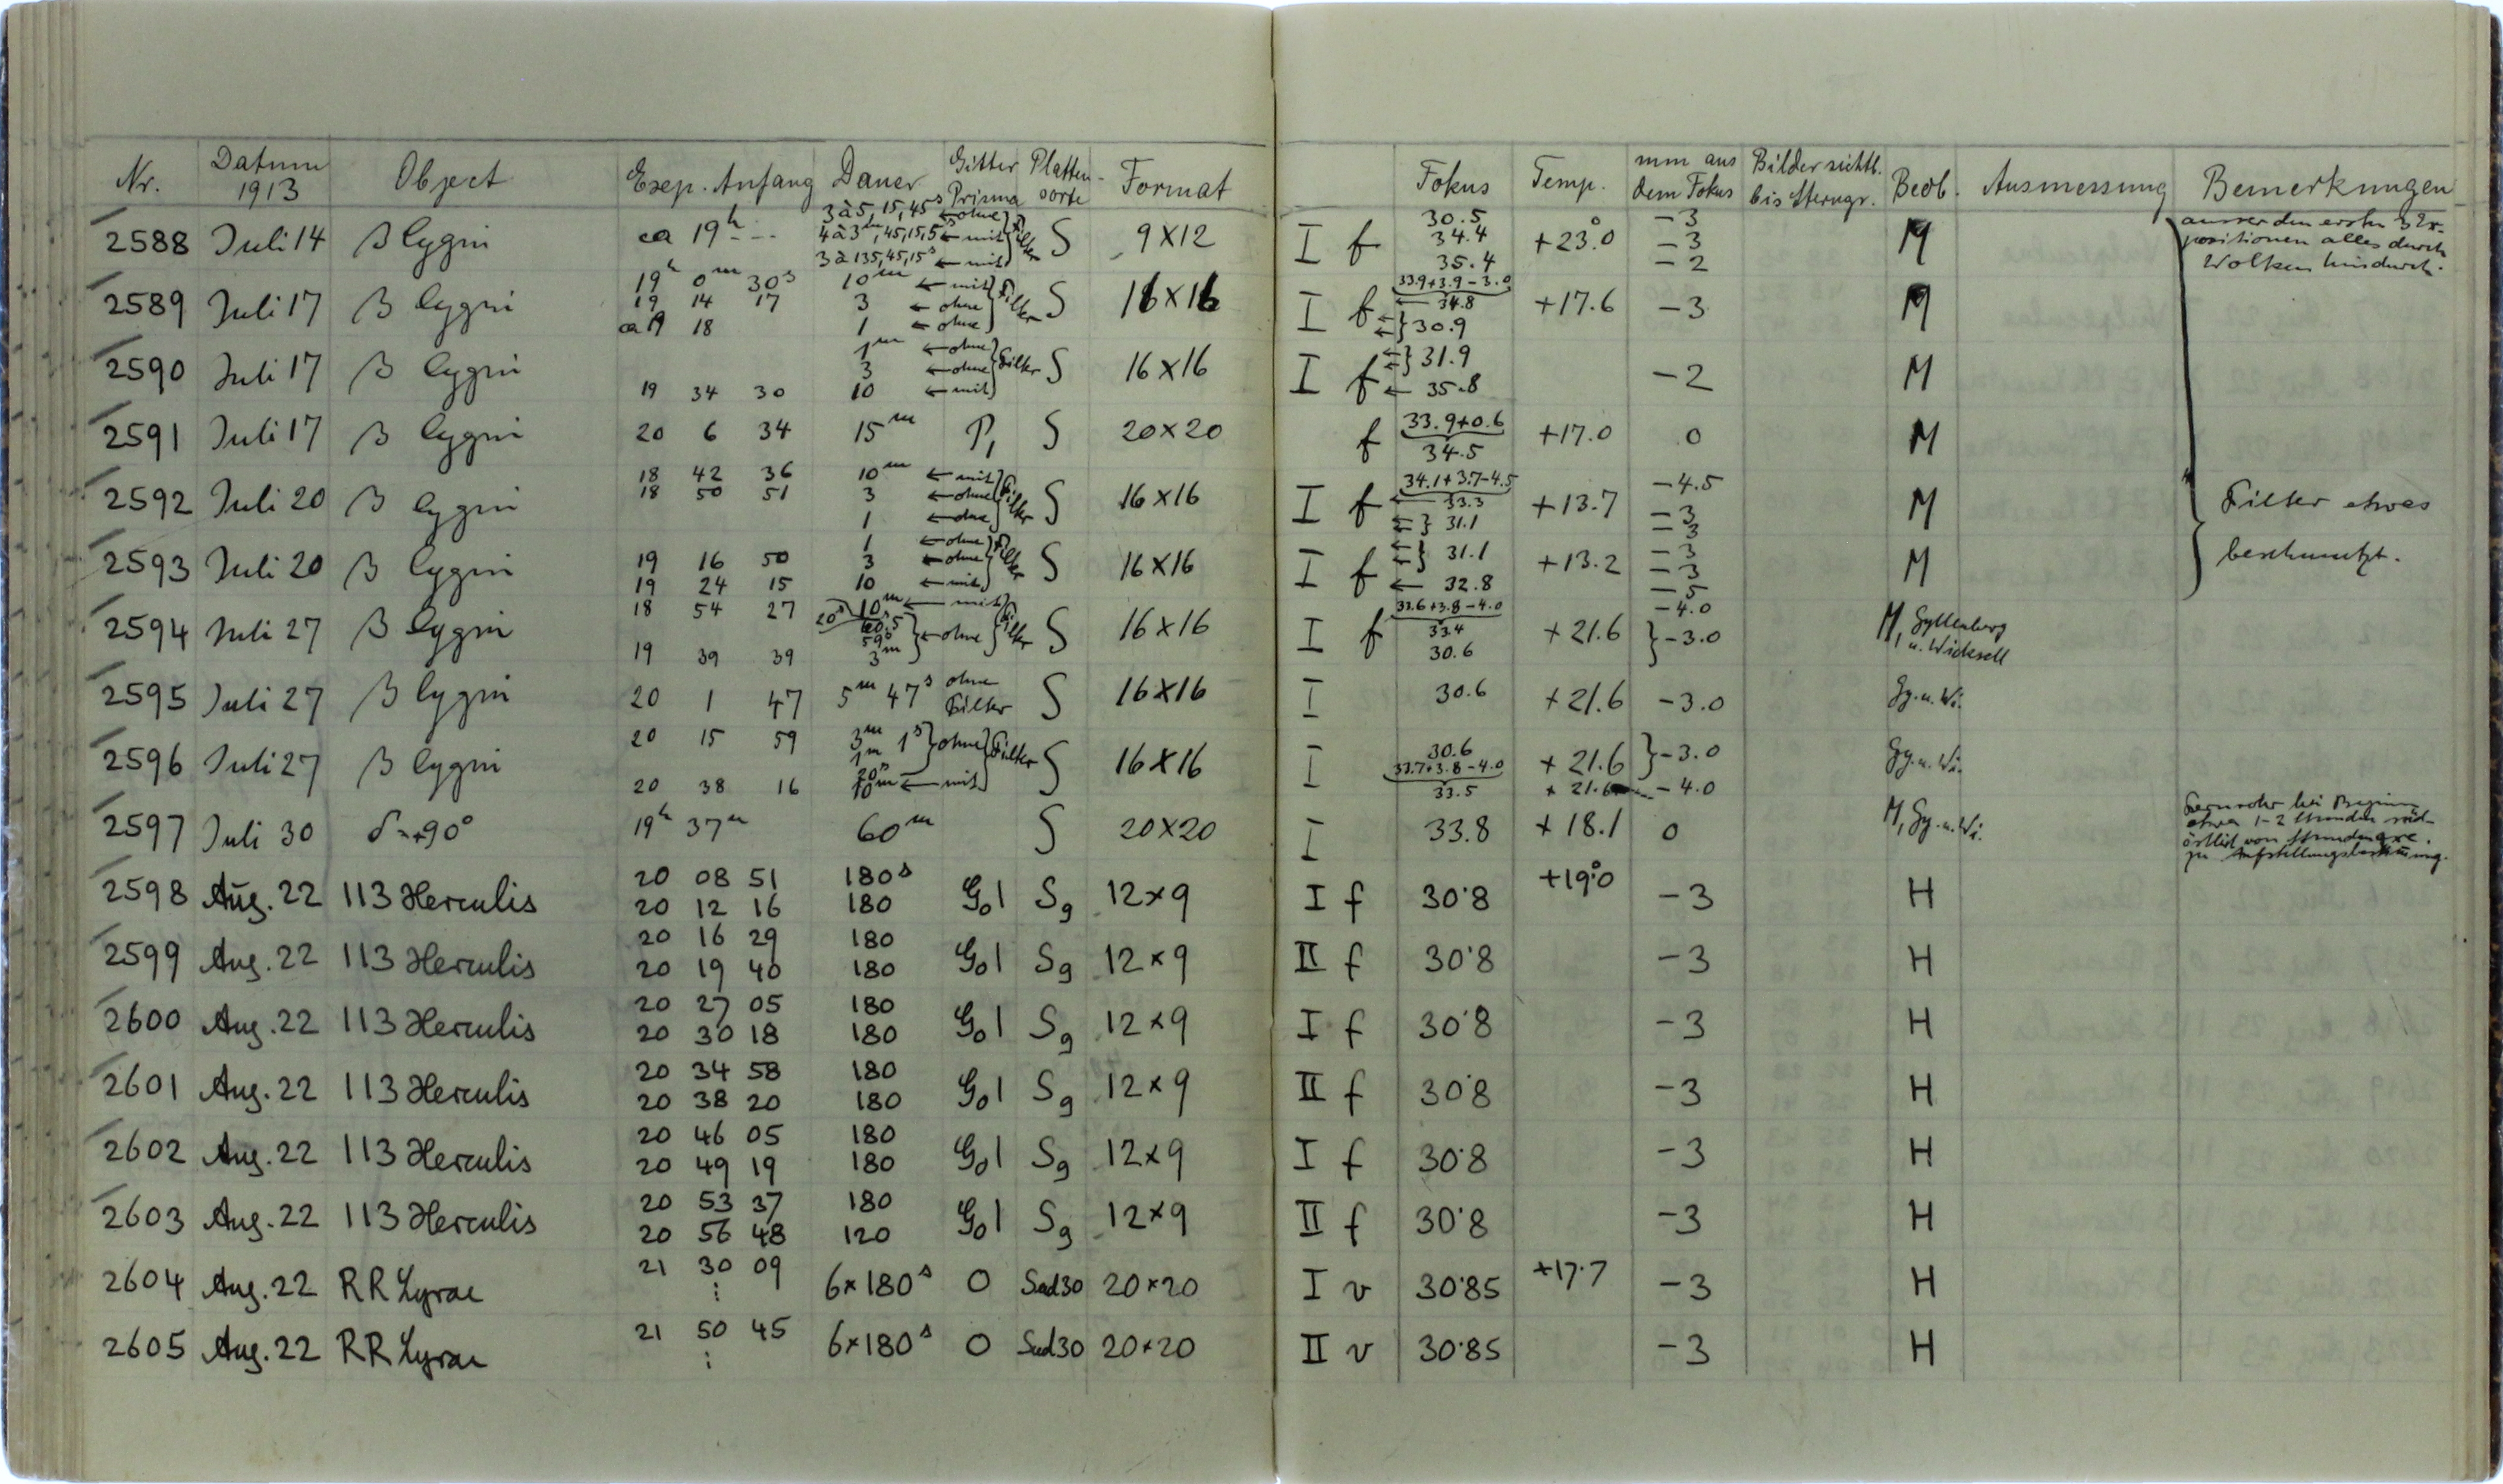 Nr. Datum 1913 Object Exp. Anfang Dauer Gitter Prisma Platten-sorte Format Fokus Temp. mm aus dem Fokus Bilder sichtb. bis Sterngr. Beob. Ausmessung Bemerkungen
2588 Juli 14 β Cygni ca 19h -- --- 3 à 5, 15, 45s ← ohne } Filter S 9×12 I f 30.5 -3 +23.°0 M ausser den ersten 3 Ex-
4 à 3m, 45, 15, 5s ← mit 34.4 -3 positionen alles durch
3 à 135, 45, 15s ← mit 35.4 -2 Wolken hindurch.
2589 Juli 17 β Cygni 19h 0m 30s 10m ← mit } Filter S 16×16 I f 33.9+3.9-3.0 +17.6 -3 M
19 14 17 3 ← ohne ← 34.8
ca 19 18 1 ← ohne ←← } 30.9
2590 Juli 17 β Cygni 1m ← ohne } Filter S 16×16 I f ←← } 31.9 -2 M
3 ← ohne
19 34 30 10 ← mit ← 35.8
2591 Juli 17 β Cygni 20 6 34 15m P1 S 20×20 f 33.9+0.6 +17.0 0 M
34.5
2592 Juli 20 β Cygni 18 42 36 10m ← mit } Filter S 16×16 I f 34.1+3.7-4.5 +13.7 -4.5 M Filter etwas
18 50 51 3 ← ohne ← 33.3 -3
1 ← ohne ←← } 31.1 -3
2593 Juli 20 β Cygni 1 ← ohne } Filter S 16×16 I f ←← } 31.1 +13.2 -3 M beschmutzt.
19 16 50 3 ← ohne -3
19 24 15 10 ← mit ← 32.8 -5
2594 Juli 27 β Cygni 18 54 27 10m ← mit } Filter S 16×16 I f 33.6+3.8-4.0 +21.6 -4.0 M, Gyllenberg
20s 59s } ← ohne 33.4 } -3.0 u. Wicksell
19 39 39 3m 30.6
2595 Juli 27 β Cygni 20 1 47 5m 47s ohne Filter S 16×16 I 30.6 +21.6 -3.0 Gy. u. Wi.
2596 Juli 27 β Cygni 20 15 59 3m 1s } ohne } Filter S 16×16 I 30.6 +21.6 } -3.0 Gy. u. Wi.
1m 33.7+3.8-4.0
20s
20 38 16 10m ← mit 33.5 +21.6 -4.0
2597 Juli 30 δ=+90° 19h 37m 60m S 20×20 I 33.8 +18.1 0 M, Gy. u. Wi. Fernrohr bei Beginn
etwa 1-2 Stunden süd-
östlich von
zu
2598 Aug. 22 113 Herculis 20 08 51 180s G01 Sg 12×9 I f 30.8 +19.°0 -3 H
20 12 16 180
2599 Aug. 22 113 Herculis 20 16 29 180 G01 Sg 12×9 II f 30.8 -3 H
20 19 40 180
2600 Aug. 22 113 Herculis 20 27 05 180 G01 Sg 12×9 I f 30.8 -3 H
20 30 18 180
2601 Aug. 22 113 Herculis 20 34 58 180 G01 Sg 12×9 II f 30.8 -3 H
20 38 20 180
2602 Aug. 22 113 Herculis 20 46 05 180 G01 Sg 12×9 I f 30.8 -3 H
20 49 19 180
2603 Aug. 22 113 Herculis 20 53 37 180 G01 Sg 12×9 II f 30.8 -3 H
20 56 48 120
2604 Aug. 22 RR Lyrae 21 30 09 6×180s O Sud30 20×20 I v 30.85 +17.7 -3 H
⋮
2605 Aug. 22 RR Lyrae 21 50 45 6×180s O Sud30 20×20 II v 30.85 -3 H
⋮